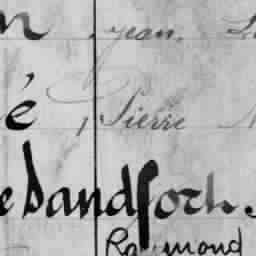 n Jean.
é Pierre
e Dandfort.
Raymond